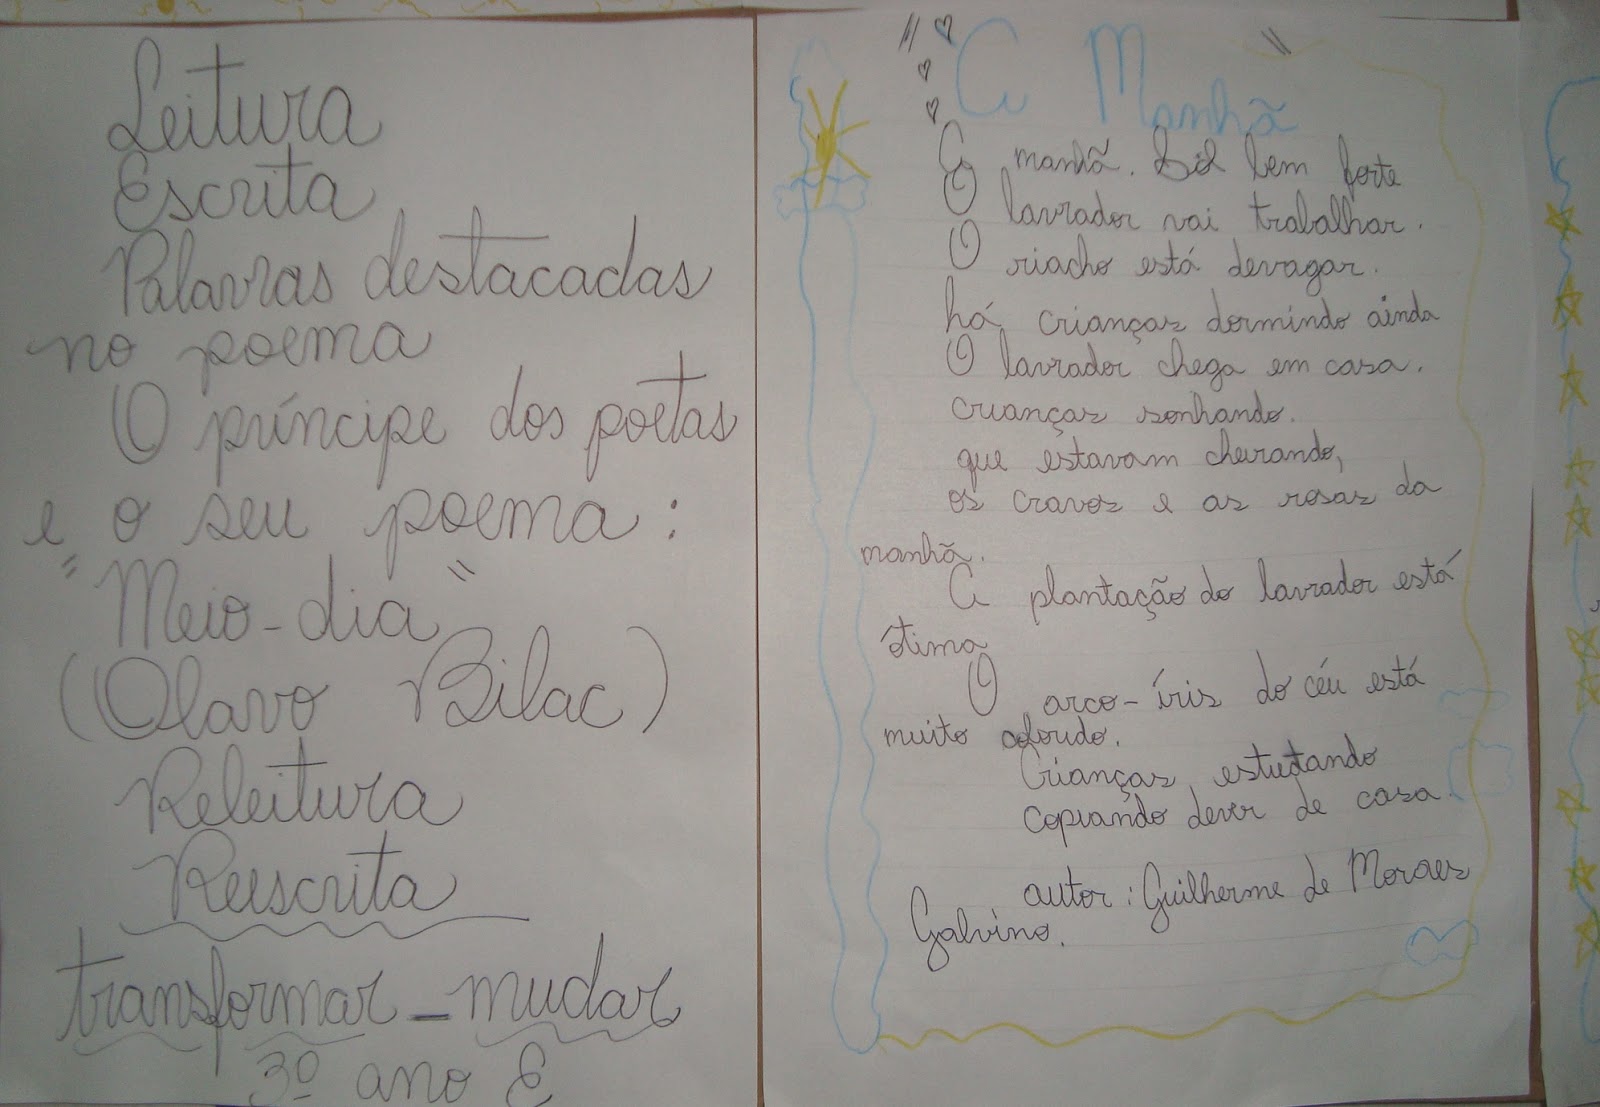 Leitura
Escrita
Palavras destacadas
no poema
O príncipe dos poetas
e o seu poema:
"Meio-dia"
(Olavo Bilac)
Releitura
Reescrita
transformar - mudar
3º ano E
"A Manhã"
A manhã. Sol bem forte
O lavrador vai trabalhar.
O riacho está devagar.
há crianças dormindo ainda
O lavrador chega em casa.
crianças sonhando.
que estavam cheirando,
os cravos e as rosas da
manhã.
A plantação do lavrador está
ótima
O arco-íris do céu está
muito colorido.
Crianças estudando
copiando dever de casa.
autor: Guilherme de Moraes
Galvino.